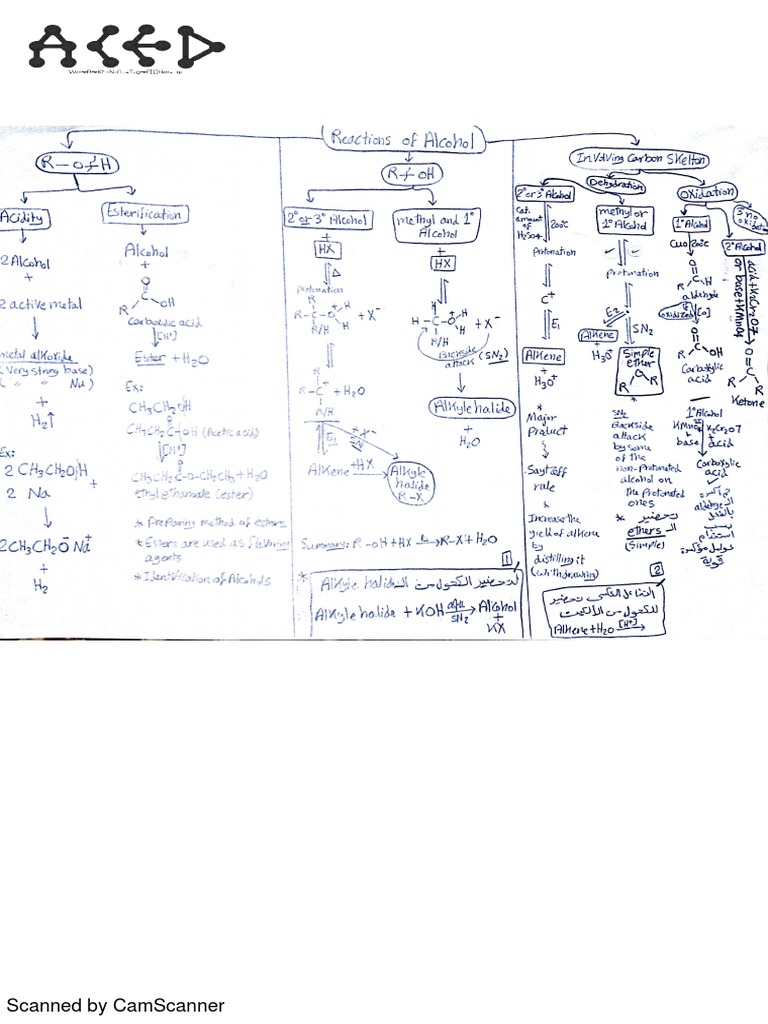 ACED
Reactions of Alcohol
R-O-H
Acidity
2 Alcohol
+
2 active metal
metal alkoxide
(Very strong base)
+
H2↑
Ex:
2 CH3CH2OH
+
2 Na
2CH3CH2O⁻ Na⁺
+
H2
Esterification
Alcohol
+
O
R C OH
Carboxlic acid
[H⁺]
Ester + H2O
Ex:
CH3CH2OH
CH3CH2C-OH (Acetic acid)
[H⁺]
CH3CH2C-O-CH2CH3 + H2O
ethyl ethanoate (ester)
* Preparing method of esters
* Esters are used as flavoring
agents
* Identification of Alcohols
R-OH
2° or 3° Alcohol
+
HX
Δ
protonation
R
R-C-O-H + X⁻
R/H
R
R-C⁺ + H2O
R/H
E1
Alkene +HX
Alkyle
halide
R-X
methyl and 1°
Alcohol
+
HX
H
H-C-O-H + X⁻
R/H
Backside
attack (SN2)
Alkyle halide
+
H2O
Summary: R-OH + HX → R-X + H2O
1
* لتحضير الكحول من الـ Alkyle halide
Alkyle halide + KOH SN2 → Alcohol
+
KX
Involving Carbon Skelton
Dehydration
2° or 3° Alcohol
Cat.
amount
of
H2SO4
200°C
protonation
C⁺
E1
Alkene
+
H3O⁺
*
Major
Product
Saytzeff
rule
*
Increase the
yield of alkene
by
distilling it
(withdrawing)
methyl or
1° Alcohol
protonation
E2
SN2
Alkene
+
H3O⁺
Simple
ether
R O R
*
SN2
Backside
attack
by some
of the
non-Protonated
alcohol on
the Protonated
ones
* تحضير
الـ ethers
(Simple)
2
التفاعل العكسي تحضير
الكحول من الألكينات
Alkene + H2O [H⁺] →
Oxidation
1° Alcohol
CuO 200°C
O
R C H
aldehyde
oxidized [O]
O
R C OH
Carboxylic
acid
1° Alcohol
KMnO4 K2Cr2O7
+ +
base acid
Carboxylic
acid
2° Alcohol
acid + K2Cr2O7
or base + KMnO4
O
R C R
Ketone
3° no
oxidation
Scanned by CamScanner